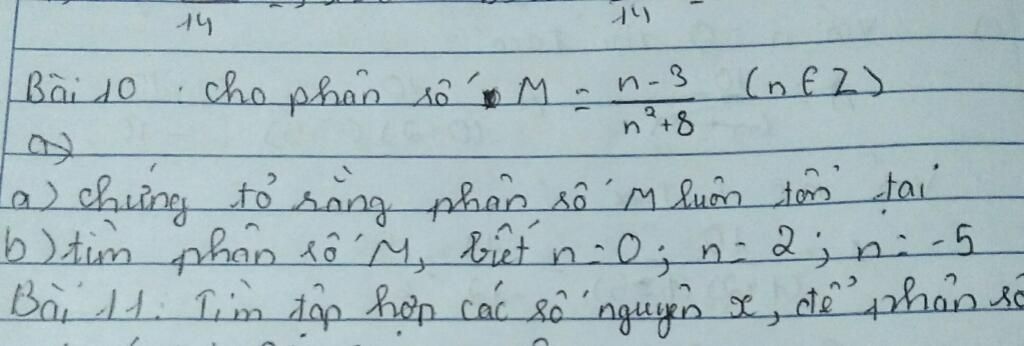 14 14
Bài 10 : cho phân số M = n-3/n²+8 (n ∈ Z)
a)
a) chứng tỏ rằng phân số M luôn tồn tại
b) tìm phân số M, biết n = 0; n = 2; n = -5
Bài 11: Tìm tập hợp các số nguyên x, để phân số